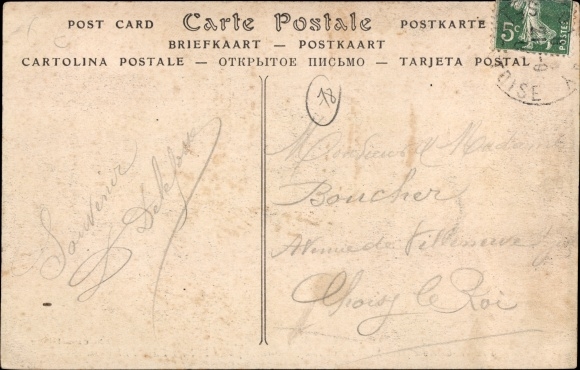 POST CARD Carte Postale POSTKARTE
BRIEFKAART — POSTKAART
CARTOLINA POSTALE — ОТКРЫТОЕ ПИСЬМО — TARJETA POSTAL
5c
POSTES
OISE
18
Souvenir
Monsieur et Madame
Boucher
Avenue de Villeneuve
Choisy le Roi